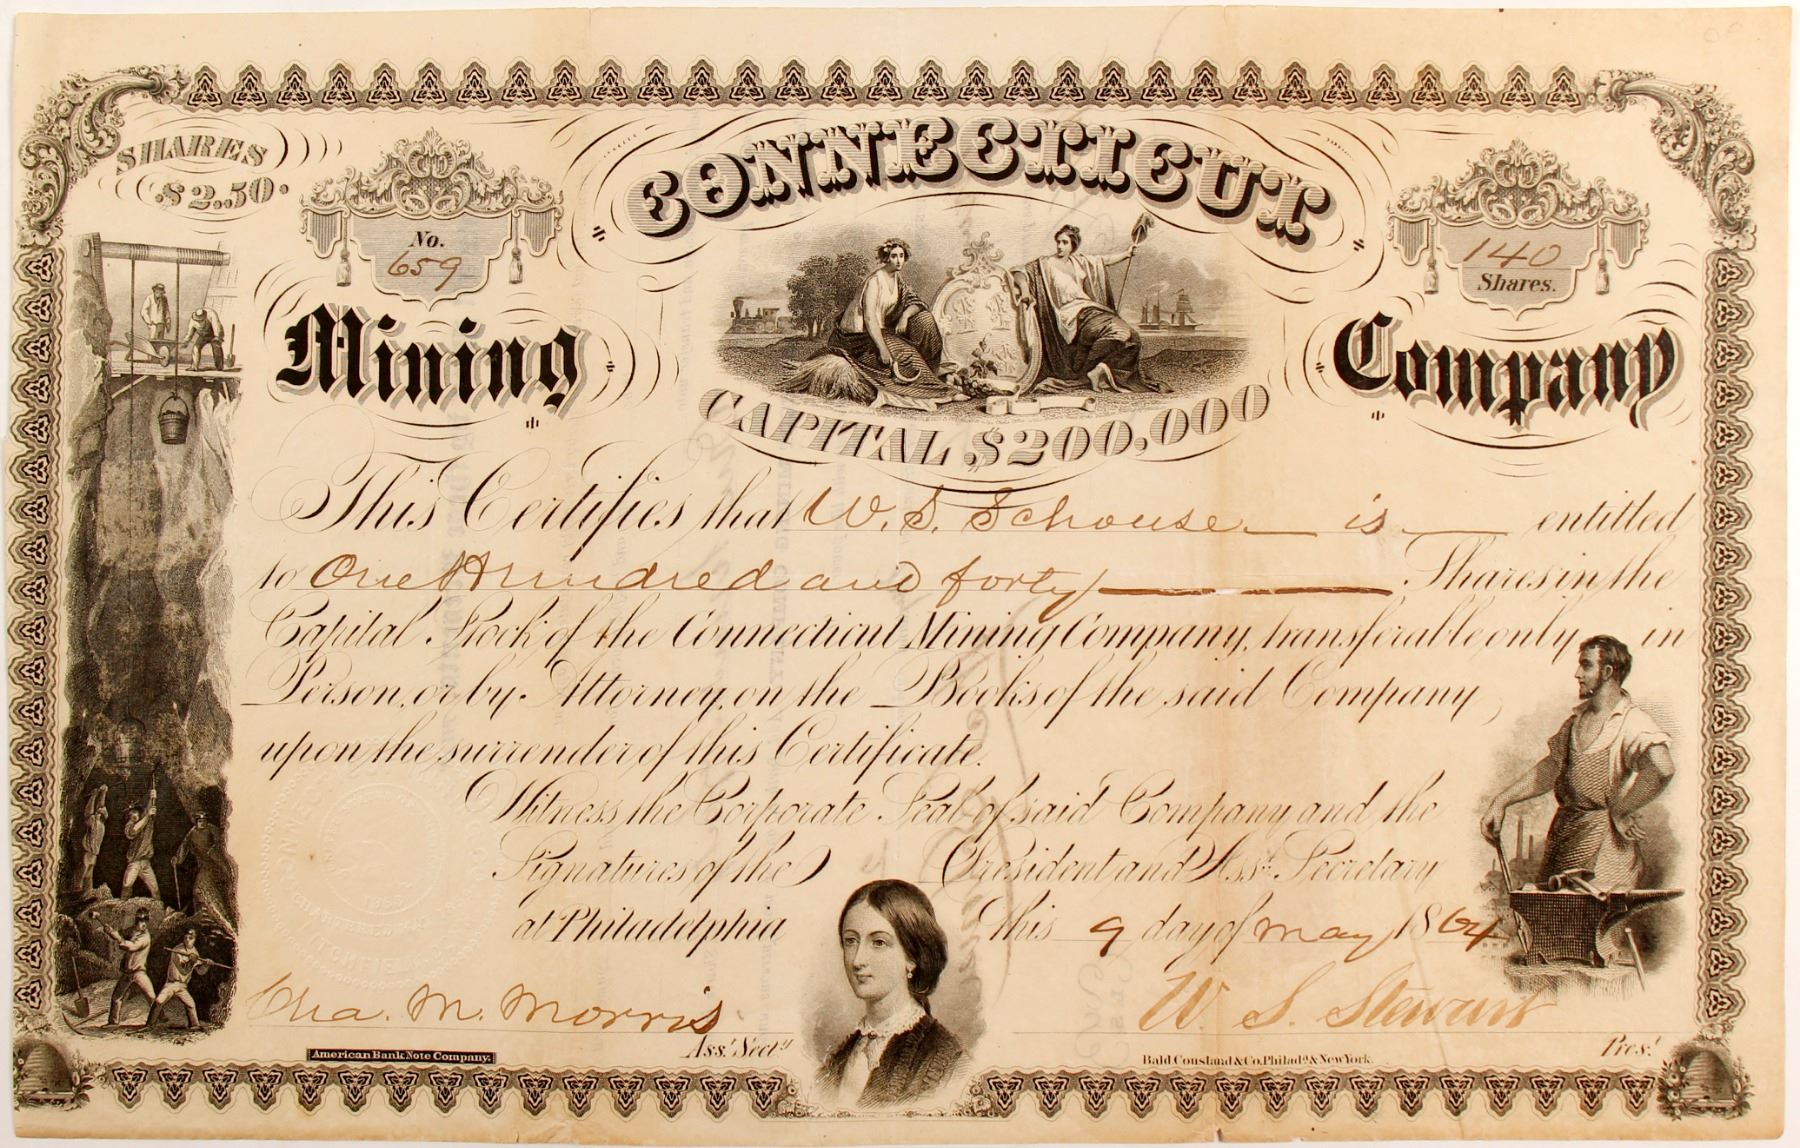 SHARES
$2.50.
No.
659
CONNECTICUT
140
Shares.
Mining
Company
CAPITAL $200,000
This Certifies that W. S. Schouse is entitled
to One Hundred and forty Shares in the
Capital Stock of the Connecticut Mining Company, transferable only in
Person, or by Attorney, on the Books of the said Company
upon the surrender of this Certificate.
Witness the Corporate Seal of said Company and the
Signatures of the President and Asst. Secretary
at Philadelphia this 9 day of May 1864
Cha. M. Morris
Asst. Secty
W. S. Stewart
Prest.
American Bank Note Company.
Bald Cousland & Co. Philada. & New York.